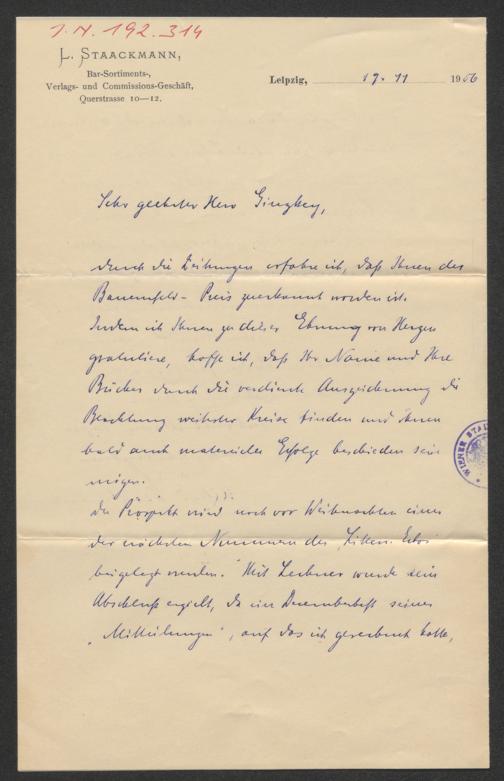 I.N. 192.314
L. STAACKMANN,
Bar-Sortiments-,
Verlags- und Commissions-Geschäft,
Querstrasse 10—12.
Leipzig, 19. 11 1906
Sehr geehrter Herr Ginzkey,
durch die Zeitungen erfahre ich, daß Ihnen der
Bauernfeld-Preis zuerkannt worden ist.
Indem ich Ihnen zu dieser Ehrung von Herzen
gratuliere, hoffe ich, daß Ihr Name und Ihre
Bücher durch die verdiente Auszeichnung die
Beachtung weitester Kreise finden und Ihnen
bald auch materielle Erfolge beschieden sein
mögen.
Der Prospekt wird noch vor Weihnachten einer
der nächsten Nummern des „Litter. Echo"
beigelegt werden. Mit Lechner wurde kein
Abschluß erzielt, da ein Dezemberheft seiner
„Mitteilungen", auf das ich gerechnet hatte,
WIENER STA